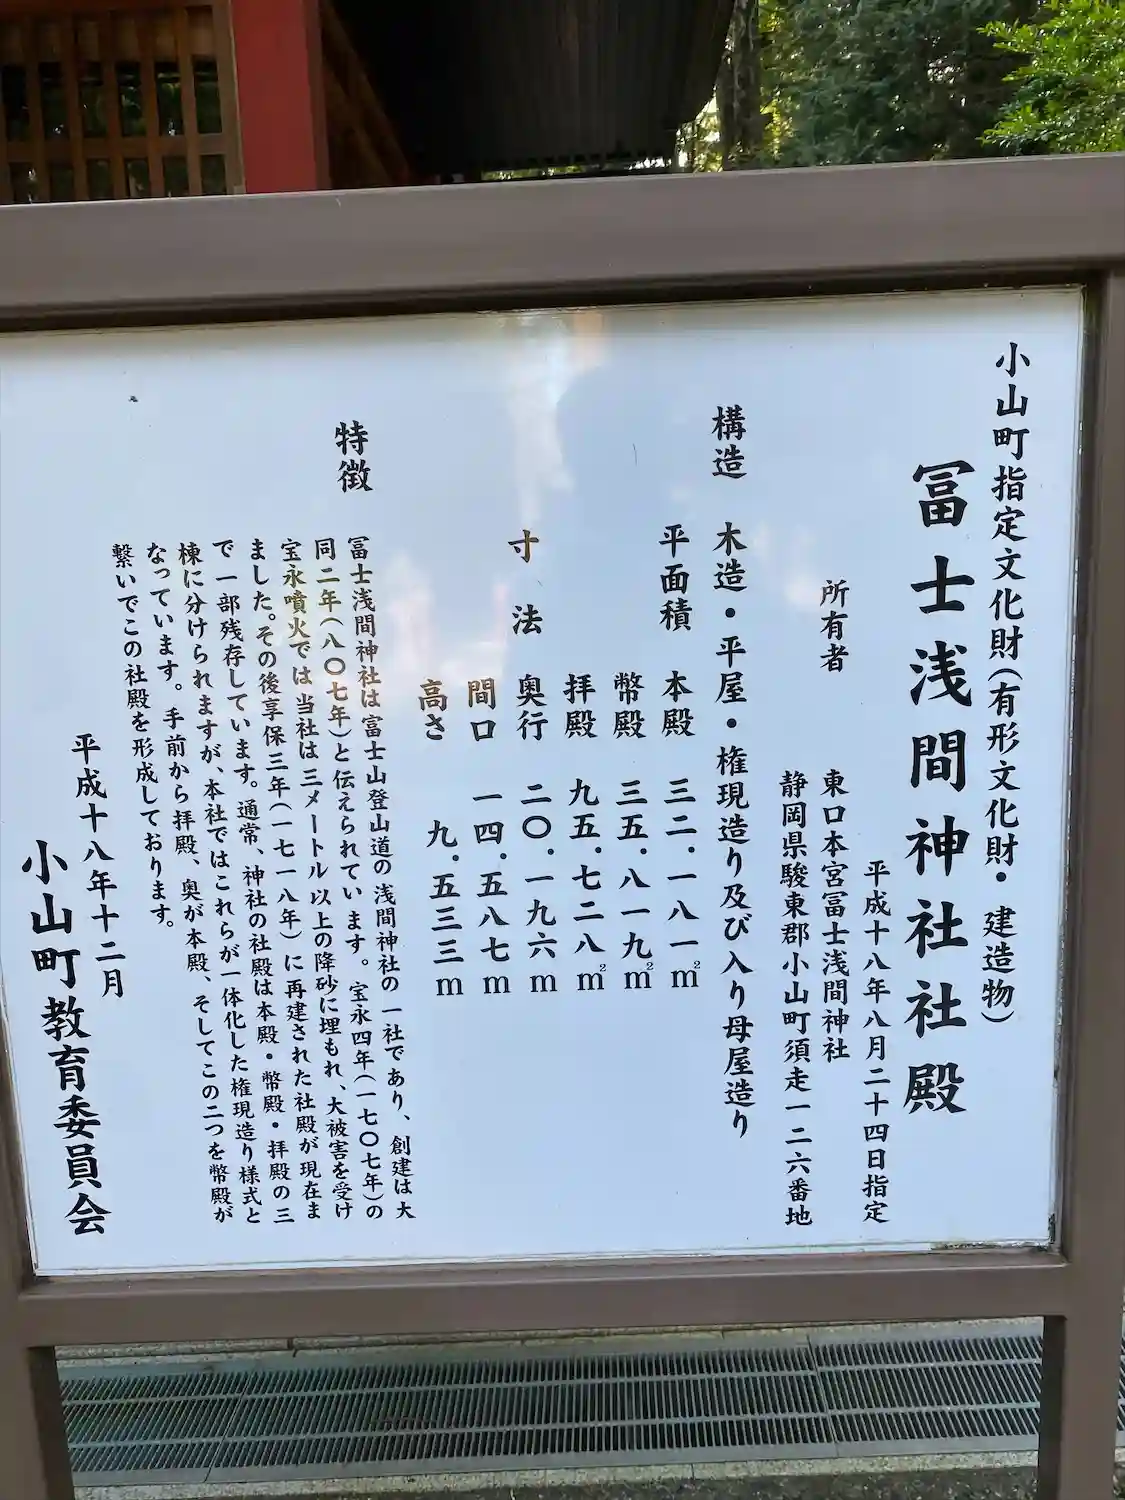 小山町指定文化財(有形文化財・建造物)
冨士浅間神社社殿
平成十八年八月二十四日指定
所有者 東口本宮冨士浅間神社
静岡県駿東郡小山町須走一二六番地
構造 木造・平屋・権現造り及び入り母屋造り
平面積 本殿 三二.一八一㎡
幣殿 三五.八一九㎡
拝殿 九五.七二八㎡
寸法 奥行 二〇.一九六m
間口 一四.五八七m
高さ 九.五三三m
特徴 冨士浅間神社は富士山登山道の浅間神社の一社であり、創建は大
同二年(八〇七年)と伝えられています。宝永四年(一七〇七年)の
宝永噴火では当社は三メートル以上の降砂に埋もれ、大被害を受け
ました。その後享保三年(一七一八年)に再建された社殿が現在ま
で一部残存しています。通常、神社の社殿は本殿・幣殿・拝殿の三
棟に分けられますが、本社ではこれらが一体化した権現造り様式と
なっています。手前から拝殿、奥が本殿、そしてこの二つを幣殿が
繋いでこの社殿を形成しております。
平成十八年十二月
小山町教育委員会